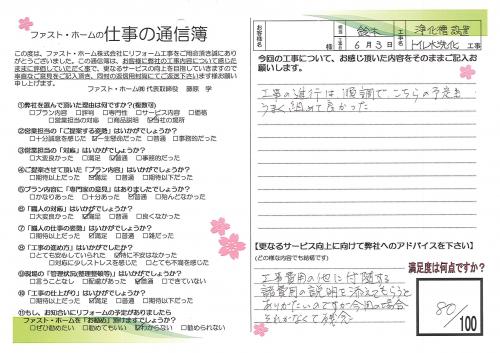 ファスト・ホームの仕事の通信簿
この度は、ファスト・ホーム株式会社にリフォーム工事をご用命頂き誠にあり
がとうございました。この通信簿は、お客様に弊社の工事内容についてどう感じた
のままに評価していただく事で、更なるサービスの向上を目指していきますので
率直なご意見をご記入頂き、同付の返送用封筒にてご返送下さいます様お願い
申し上げます。
ファスト・ホーム㈱ 代表取締役 藤原 学
①弊社を選んで頂いた理由は何ですか?(複数可)
□プラン内容 □評判 □専門性 □サービス内容 □価格
□営業担当の対応 □商品説明 ☑会社の場所
②営業担当の「ご提案する姿勢」はいかがでしょうか?
□十分誠意を感じた ☑一生懸命だった □普通 □事務的だった
③営業担当の「対応」はいかがでしょうか?
□大変良かった □満足 ☑普通 □事務的だった
④ご提案させて頂いた「プラン内容」はいかがでしょうか?
□期待以上だった ☑満足 □普通 □期待以下だった
⑤プラン内容に「専門家の意見」はありましたでしょうか?
□かなりあった □十分あった ☑普通 □殆んどなかった
⑥「職人の対応」はいかがでしょうか?
□大変良かった ☑満足 □普通 □良くなかった
⑦「職人の仕事の姿勢」はいかがでしょうか?
□期待以上だった ☑満足 □普通 □雑だった
⑧「工事の進め方」はいかがでしょうか?
□とても安心していられた ☑特に不安はなかった
□対応に少しストレスを感じた □とても不満を感じた
⑨現場の「管理状況(整理整頓等)」はいかがでしょうか?
□言うことなし □配慮があった ☑普通 □悪かった
⑩「工事の仕上がり」はいかがでしょうか?
□期待以上だった ☑満足 □普通 □期待以下だった
⑪もし、お知合いにリフォームの予定がありましたら
ファスト・ホームを「お勧め」頂けますでしょうか?
□ぜひ勧めたい □勧めてもいい ☑わからない □勧められない
お客様名
鈴木
様
施工日
6月3日
工事名
浄化槽設置
トイレ水洗化
工事
今回の工事について、お感じ頂いた内容をそのままご記入お
願いします。
工事の進行は順調で こちらの予定も
うまく組めて良かった
【更なるサービス向上に向けて弊社へのアドバイスを下さい】
(どの様な内容でも結構です)
工事費用の他に付随する
諸費用の説明を添えてもらうと
ありがたいのですが今回の場合
それがなくて残念
満足度は何点ですか?
80/100